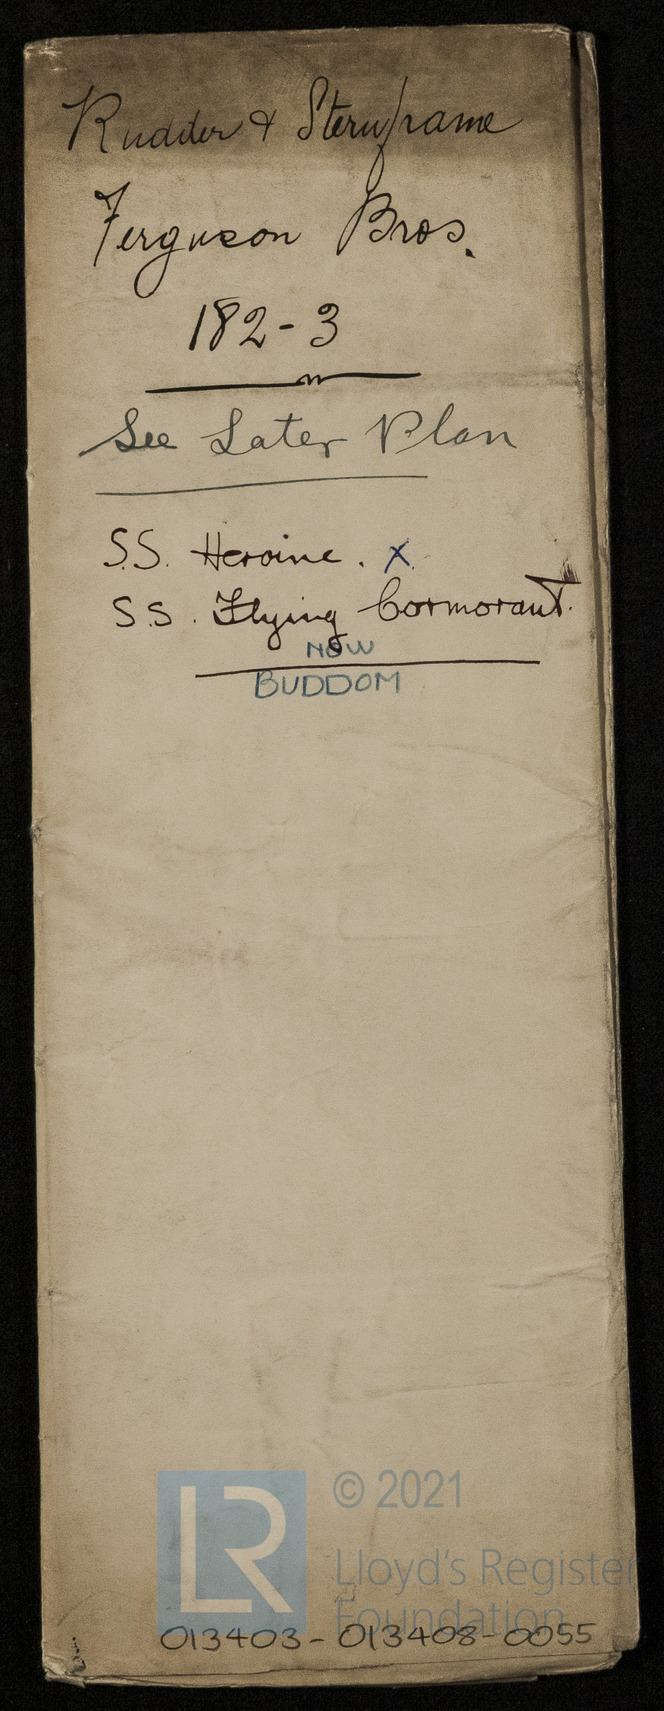 Rudder & Sternframe
Ferguson Bros.
182-3
See Later Plan
S.S. Heroine. X
S.S. Flying Cormorant.
NOW
BUDDOM
LR
© 2021
Lloyd's Register
Foundation
013403-013408-0055